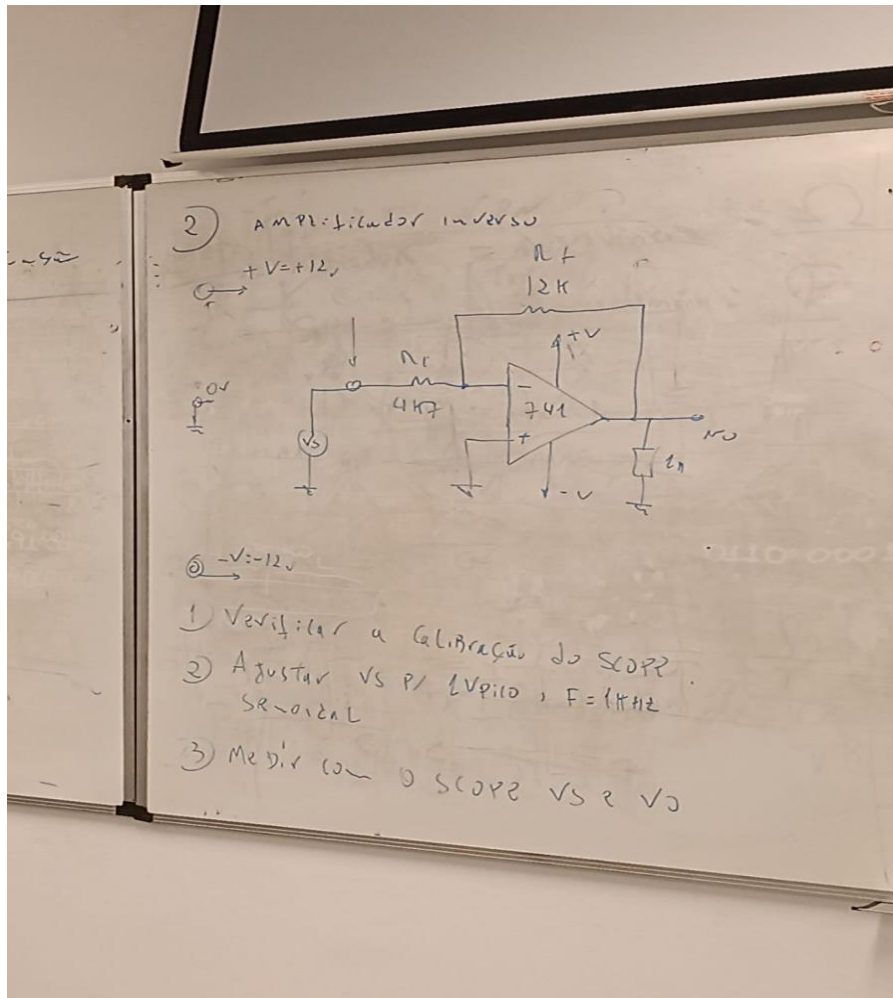 2) AMPLificador inverso
+V=+12v
Rf
12K
0v
R1
4K7
VS
-
+
741
+V
-V
vo
-V=-12v
1) Verificar a CaLiBração do SCOPE.
2) AJustar VS P/ 1Vpico, F=1KHZ
senoidaL
3) MeDir com o SCOPE VS e VO